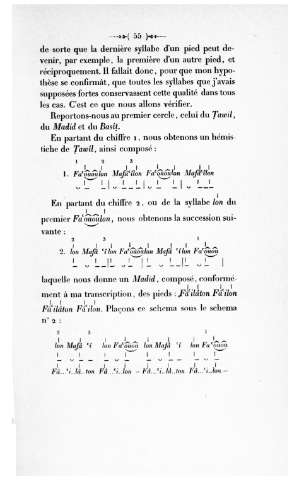 55
de sorte que la dernière syllabe d'un pied peut de-
venir, par exemple, la première d'un autre pied, et
réciproquement. Il fallait donc, pour que mon hypo-
thèse se confirmât, que toutes les syllabes que j'avais
supposées fortes conservassent cette qualité dans tous
les cas. C'est ce que nous allons vérifier.
Reportons-nous au premier cercle, celui du Ṭawîl,
du Madîd et du Basîṭ.
En partant du chiffre 1, nous obtenons un hémis-
tiche de Ṭawîl, ainsi composé :
1 2 3
1. Fa'oûoûlon Mafâ'îlon Fa'oûoûlon Mafâ'îlon
En partant du chiffre 2, ou de la syllabe lon du
premier Fa'oûoûlon, nous obtenons la succession sui-
vante :
2 3 1
2. lon Mafâ 'î lon Fa'oûoûlon Mafâ 'î lon Fa'oûoû
laquelle nous donne un Madîd, composé, conformé-
ment à ma transcription, des pieds : Fâ'ilâton Fâ'ilon
Fâ'ilâton Fâ'ilon. Plaçons ce schema sous le schema
n° 2 :
2 3 1
lon Mafâ 'i lon Fa'oûoû lon Mafâ 'i lon Fa'oûoû
Fâ..'i..lâ..ton Fâ..'i..lon – Fâ..'i..lâ..ton Fâ..'i..lon –